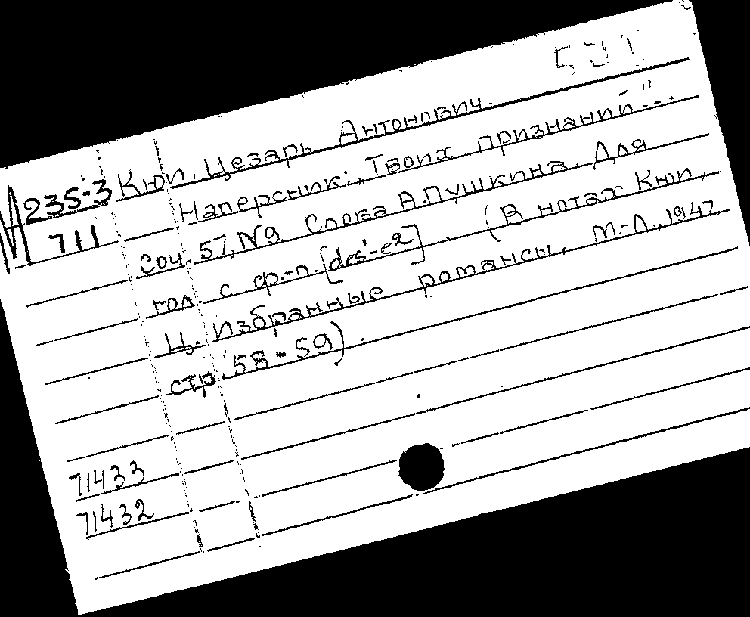 531
Кюи, Цезарь Антонович.
М 235-3
711
Наперсник: „Твоих признаний"...
Соч. 57, N9. Слова А.Пушкина. Для
гол. с ф.-п. [des¹-e²] (В нотах Кюи,
Ц. Избранные романсы. М.-Л., 1947
стр. 58-59).
71433
71432